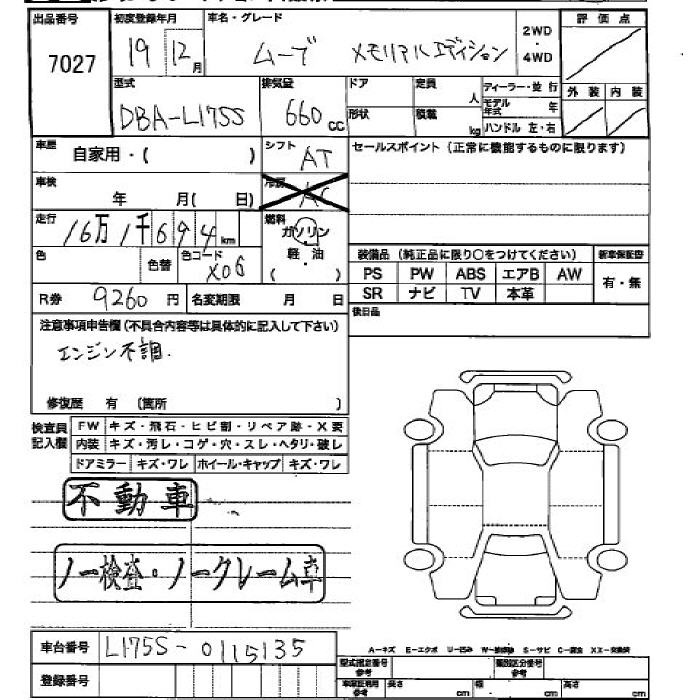 出品番号 初度登録年月 車名・グレード 2WD・4WD 評価点
7027 19 12月 ムーブ メモリアルエディション
型式 排気量 ドア 定員 人 ディーラー・並行 外装 内装
DBA-L175S 660cc 形状 積載 kg モデル年式 年 ハンドル 左・右
車歴 自家用・( ) シフト AT セールスポイント(正常に機能するものに限ります)
車検 年 月( 日) 冷房 AC
走行 16万1千694km 燃料 ガソリン
色 色替 色コード X06 軽・油 ( ) 装備品(純正品に限り○をつけてください) 新車保証書
PS PW ABS エアB AW 有・無
R券 9260円 名変期限 月 日 SR ナビ TV 本革
注意事項申告欄(不具合内容等は具体的に記入して下さい) 後日品
エンジン不調.
修復歴 有(箇所 )
検査員記入欄 FW キズ・飛石・ヒビ割・リペア跡・X要
内装 キズ・汚レ・コゲ・穴・スレ・ヘタリ・破レ
ドアミラー キズ・ワレ ホイール・キャップ キズ・ワレ
不動車
ノー検査・ノークレーム車
車台番号 L175S-0115135 A-キズ E-エクボ U-凹ミ S-サビ C-腐食 XX-交換済
登録番号 型式指定番号 参考 類別区分番号 参考
車庫証明用 参考 長さ cm 幅 cm 高さ cm